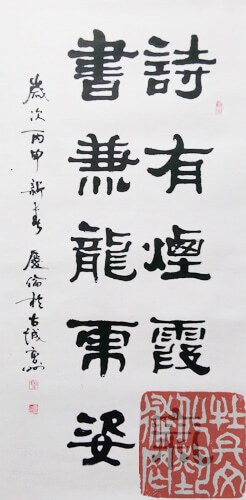 詩有煙霞
書兼龍虎姿
歲次丙申新春慶倫於古城